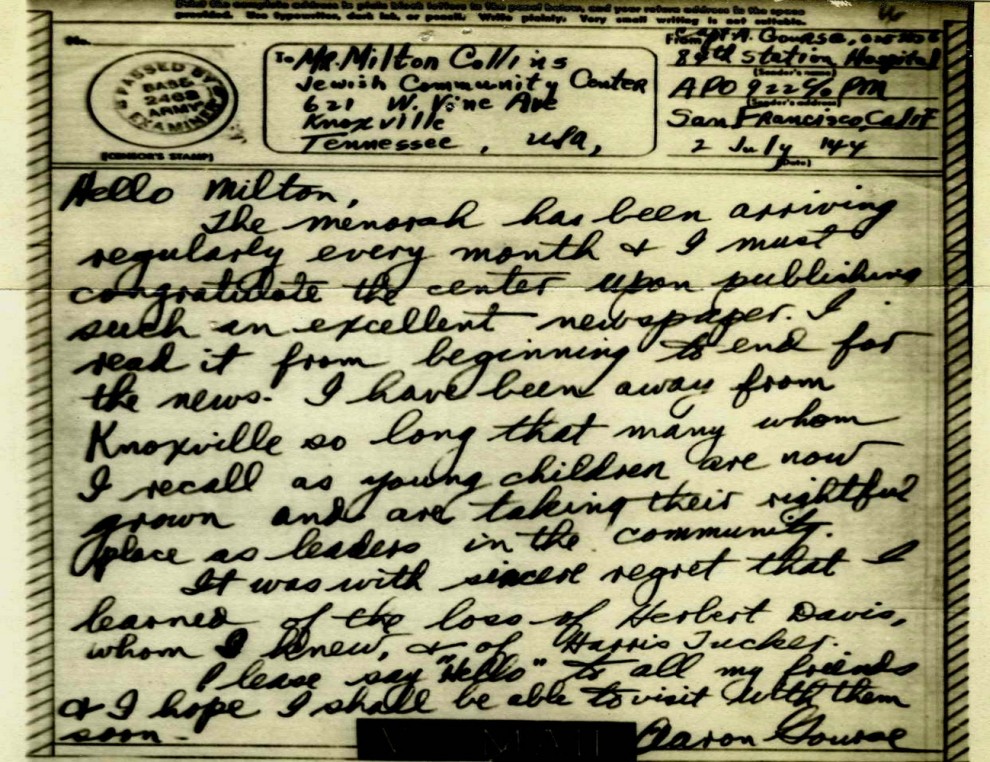 Print the complete address in plain block letters in the panel below, and your return address in the space
provided. Use typewriter, dark ink, or pencil. Write plainly. Very small writing is not suitable.
No.
PASSED BY
BASE
2468
ARMY
EXAMINER
(CENSOR'S STAMP)
To Mr. Milton Collins
Jewish Community Center
621 W. Vine Ave
Knoxville
Tennessee, USA,
From Capt A. Gourse,
84th Station Hospital
(Sender's name)
APO 922 % PM
(Sender's address)
San Francisco, Calif
2 July '44
(Date)
Hello Milton,
The menorah has been arriving
regularly every month & I must
congratulate the center upon publishing
such an excellent newspaper. I
read it from beginning to end for
the news. I have been away from
Knoxville so long that many whom
I recall as young children are now
grown and are taking their rightful
place as leaders in the community.
It was with sincere regret that I
learned of the loss of Herbert Davis,
whom I knew, & of Harris Tucker.
Please say "Hello" to all my friends
& I hope I shall be able to visit with them
soon.
V MAIL
Aaron Gourse